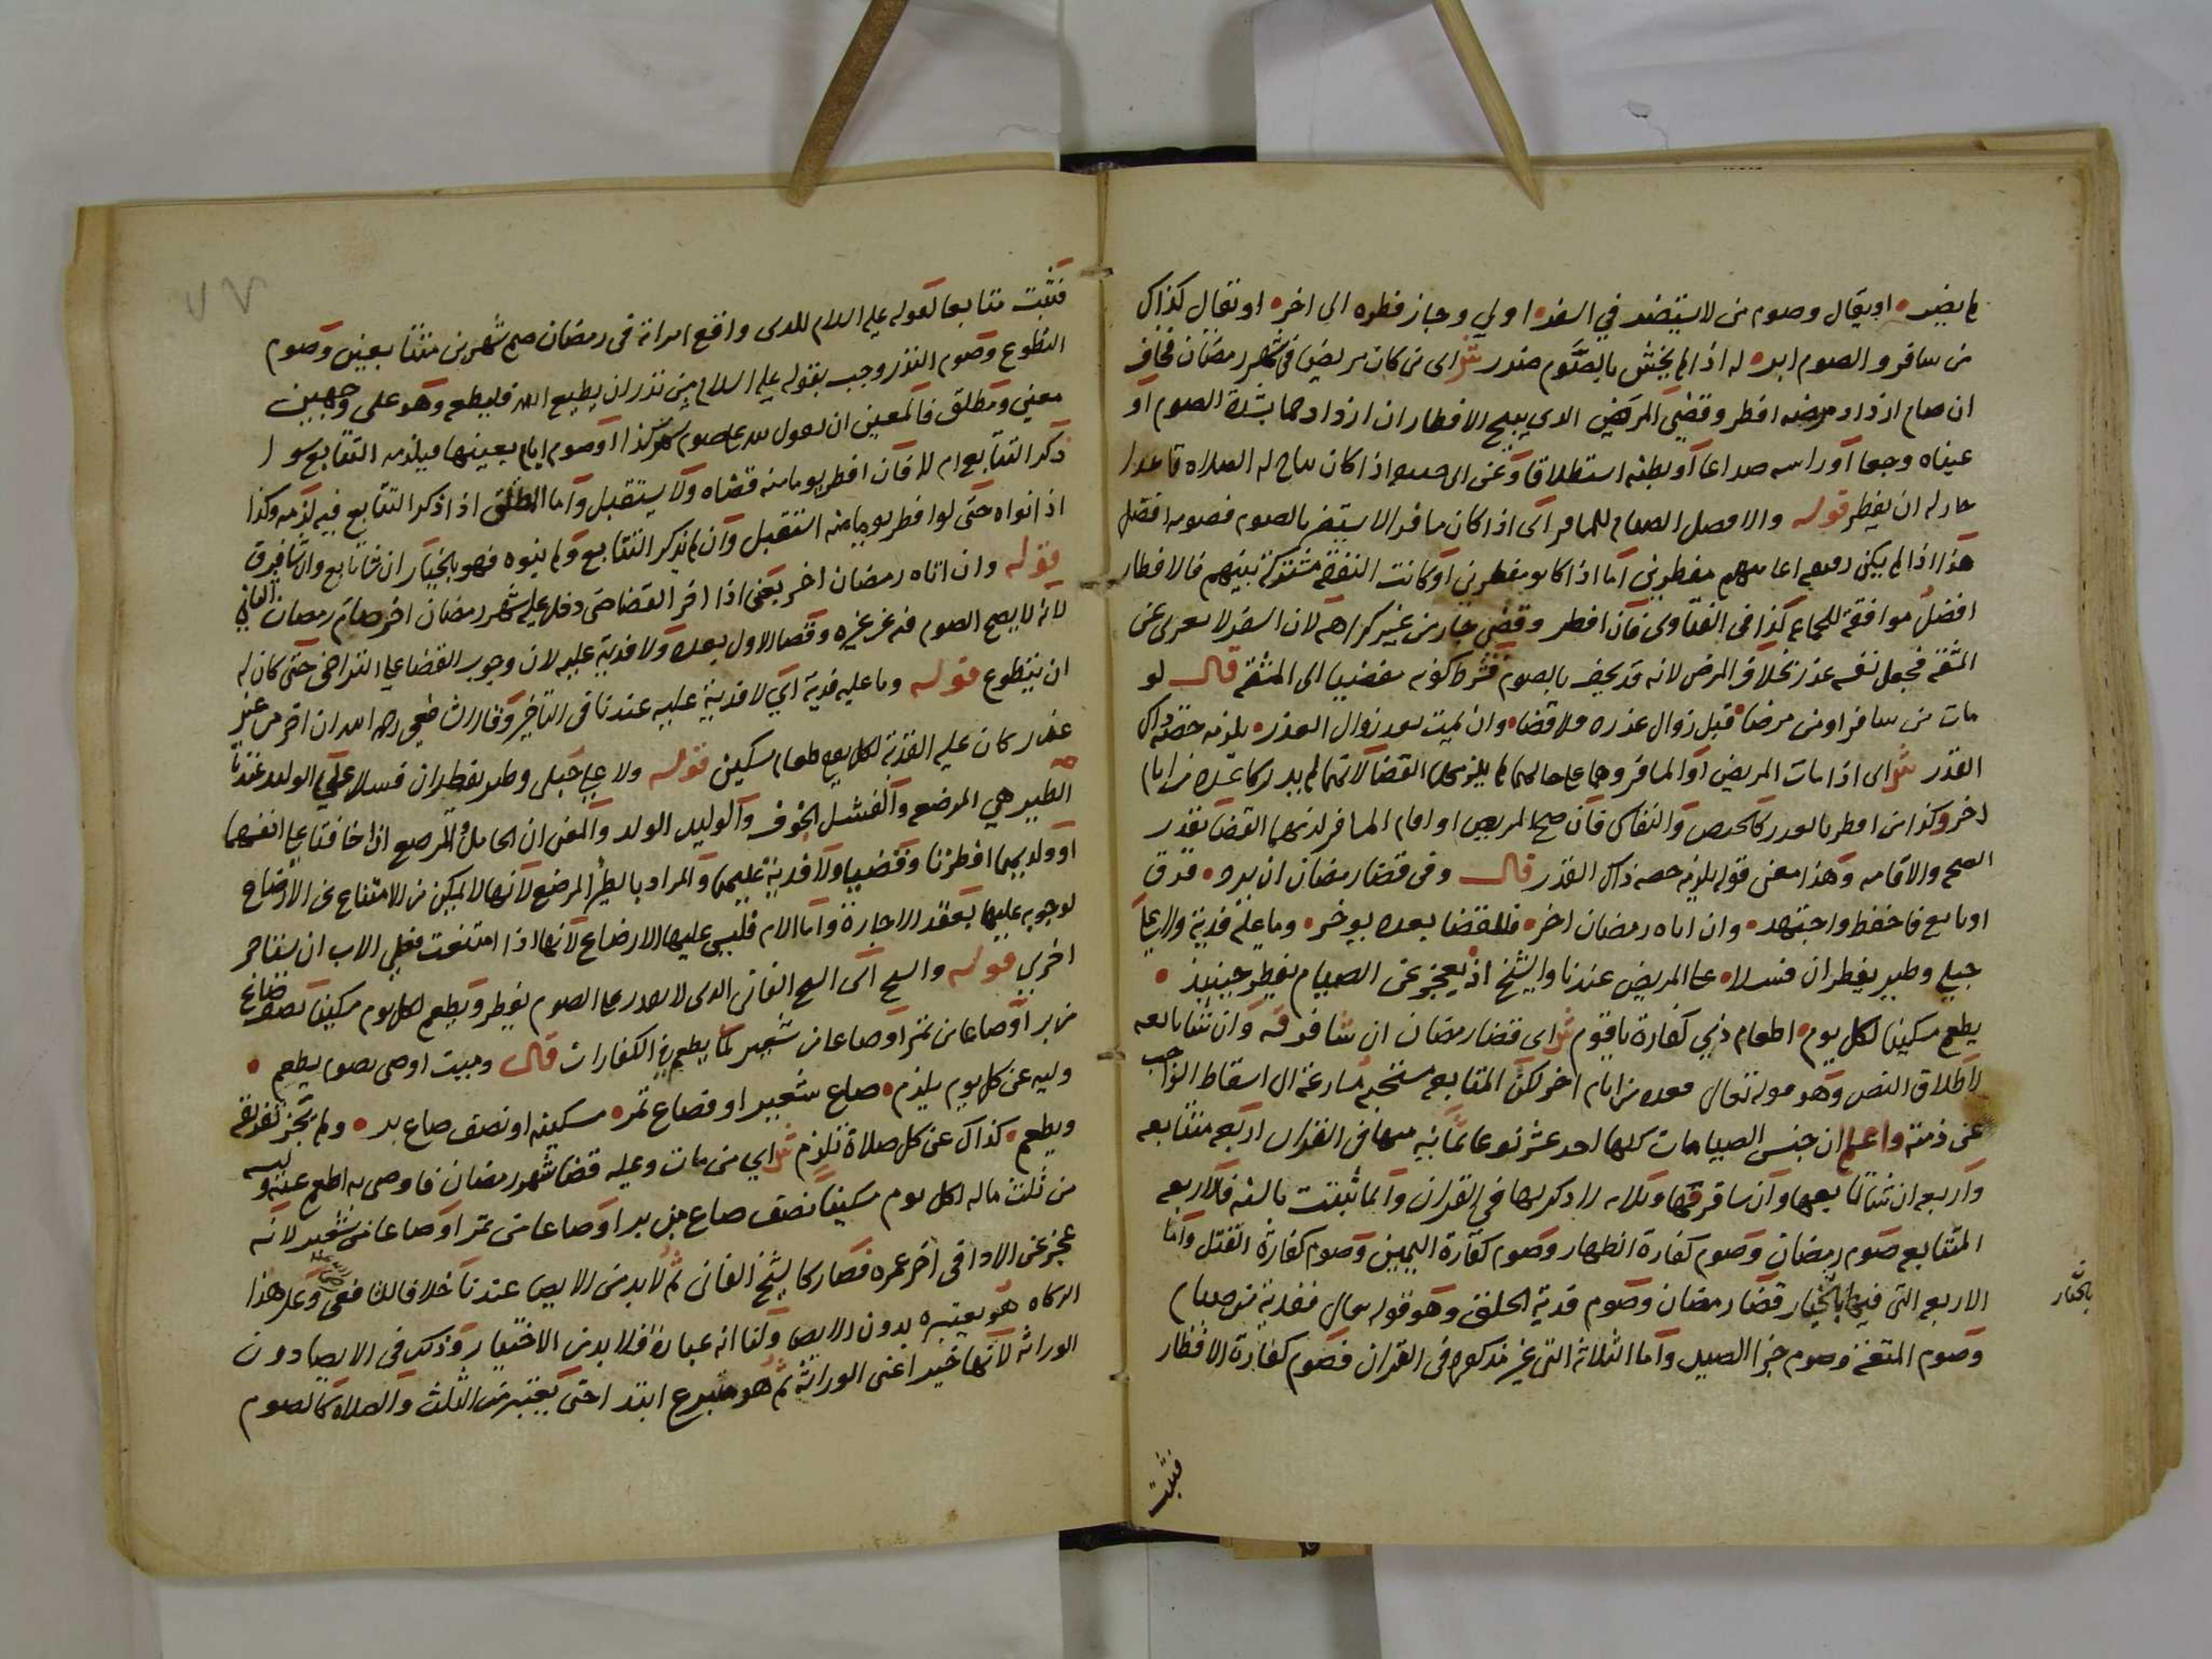 لم يضير • او يقال وصوم من لا يستضر في السفر • اولي وجاز فطره الى اخر • او نقال كذاك
من سافر والصوم ابر • له اذا لم يخش بالصوم ضرر ش اى من كان مريض فى شهر رمضان فخاف
ان صام ازداد مرضه افطر وقضي المرض الدي يبيح الافطار ان ازداد حما بشدة الصوم او
عيناه وجعا او راسه صداعا او بطنه استطلاقا وعن ابى اذا كان يباح له الصلاه قاعدا
جاز له ان يفطر قوله والافضل الصيام للمسافر اى اذا كان مسافر الا يستضر بالصوم فصومه افضل
هذا اذا لم يكن مفطرين اما اذا كانو مفطرين او كانت النفقة مشتركة بينهم فالافطار
افضل موافقة للجماعه كذا فى الفتاوى فان افطر وقضى جاز من غير كراهه لان السفر لا يعرى عن
المشقه فجعل نفسه عذر بخلاف المرض لانه قد يخف بالصوم فشرط كونه مفضيا الى المشقه قال لو
مات من سافر او من مرضا • قبل زوال عذره فلا قضا • وان يميت بعد زوال العذر • يلزمه حصه ذاك
القدر ش اى اذا مات المريض او المسافر وهما على حالهما لم يلزمهما القضا لانهما لم يدركا عدة من ايام
اخر وكذا من افطر بالعذر كالحيض والنفاس فان صح المريض او اقام المسافر لزمهما القضا بقدر
الصحه والاقامه وهذا معنى قوله يلزمه حصه ذاك القدر قال وفى قضا رمضان ان يرد • فرق
او تابع فاحفظ واجتهد • وان اتاه رمضان اخر • فالقضا بعده يوخر • وما عليه فدية ولا على
حبلى وطير يفطران فسلا • على المريض عندنا والشيخ اذ يعجز عن الصيام يفطر حينيذ •
يطعم مسكينا لكل يوم • اطعام ذي كفارة يا قوم ش اى قضا رمضان ان شا فرقه وان شا تابعه
لاطلاق النص وهو قوله تعالى فعده من ايام اخر لكن المتابعه مستحبه مسارعة الى اسقاط الواجب
عن ذمته واعلم ان جنس الصيامات كلها احد عشر نوعا ثمانيه منها فى القران اربعه متتابعه
واربعه ان شا تابعها وان شا فرقها وثلاثه لا ذكر لها فى القران وانما ثبتت بالسنه فالاربعه
المتتابعه صوم رمضان وصوم كفارة الظهار وصوم كفارة اليمين وصوم كفارة القتل واما
الاربعه التى فيها بالخيار قضا رمضان وصوم فدية الحلق وهو قوله تعالى ففدية من صيام
وصوم المتعه وصوم جزا الصيد واما الثلاثه التى غير مذكوره فى القران فصوم كفارة الافطار
بالخيار
فثبت
فثبت متتابعا لقوله عليه السلام للذى واقع امراته فى رمضان صم شهرين متتابعين وصوم
التطوع وصوم النذر وجب بقوله عليه السلام من نذر ان يطيع الله فليطعه وهو على وجهين
معين ومطلق فالمعين ان يقول لله على صوم شهر كذا او صوم ايام بعينها فيلزمه التتابع سوا
ذكر التتابع ام لا فان افطر يوما منه قضاه ولا يستقبل واما المطلق اذا ذكر التتابع فيه لزمه وكذا
اذا نواه حتى لو افطر يوما منه استقبل وان لم يذكر التتابع ولم ينوه فهو بالخيار ان شا تابع وان شا فرق
قوله وان اتاه رمضان اخر يعنى اذا اخر القضا حتى دخل عليه شهر رمضان اخر صام رمضان الثاني
لانه لا يصح الصوم فيه عن غيره وقضا الاول بعده ولا فدية عليه لان وجوب القضا على التراخى حتى كان له
ان يتطوع قوله وما عليه فدية اي لا فدية عليه عندنا فى التاخير وقال الشافعى رحمه الله ان اخر من غير
عذر كان عليه الفدية لكل يوم طعام مسكين قوله ولا على حبلى وطير يفطران فسلا على الوليد عندنا
الطير هي المرضع والفشل الخوف والوليد الولد والمعنى ان الحامل والمرضع اذا خافتا على انفسهما
او ولديهما افطرتا وقضيا ولا فدية عليهما والمراد بالطير المرضع لانها لا يمكن من الامتناع عن الارضاع
لوجوبه عليها بعقد الاجارة واما الام فليس عليها الارضاع لانها اذا امتنعت فعلى الاب ان يستاجر
اخرى قوله والشيخ اى الشيخ الفانى الذى لا يقدر على الصوم يفطر ويطعم لكل يوم مسكينا نصف صاع
من بر او صاعا من تمر او صاعا من شعير كما يطعم فى الكفارات قال وميت اوصى بصوم يطعم •
وليه عن كل يوم يلزم • صاع شعير او فصاع تمر • مسكينه او نصف صاع بر • ولم يجز تفرقة
ويطعم • كذاك عن كل صلاة تلزم ش اي من مات وعليه قضا شهر رمضان فاوصى به اطعم عنه وليه
من ثلث ماله لكل يوم مسكينا نصف صاع من بر او صاعا من تمر او صاعا من شعير لانه
عجز عن الادا فى اخر عمره فصار كالشيخ الفانى ثم لا بد من الايصا عندنا خلافا للشافعى وعلى هذا
الزكاه هو يعتبره بدون الايصا ولنا انه عبادة فلا بد من الاختيار وذلك فى الايصا دون
الوراثه لانها خبر اعنى الوراثة ثم هو متبرع ابتدا حتى يعتبر من الثلث والصلاه كالصوم